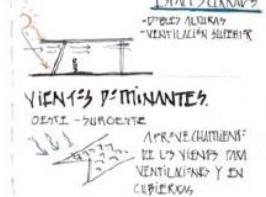 ESPACIOS CERRADOS
-DOBLES ALTURAS
-VENTILACIÓN SUPERIOR
VIENTOS DOMINANTES.
OESTE - SUROESTE
APROVECHAMIENTO
DE LOS VIENTOS PARA
VENTILACIONES Y EN
CUBIERTAS